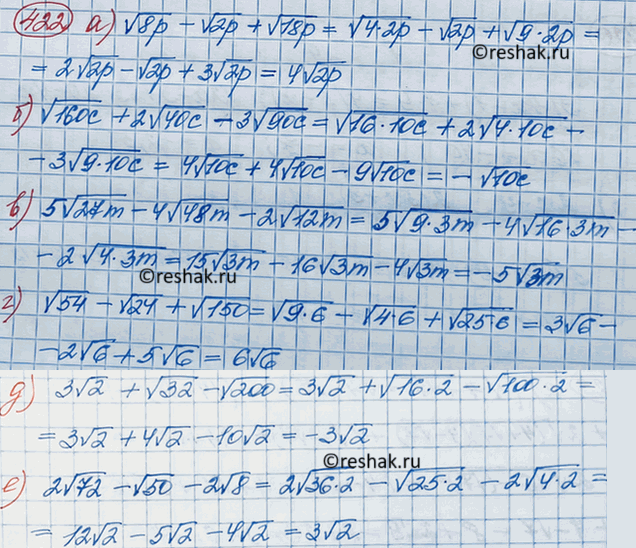 422 а) √8p - √2p + √18p = √4·2p - √2p + √9·2p =
©reshak.ru
= 2√2p - √2p + 3√2p = 4√2p
б) √160c + 2√40c - 3√90c = √16·10c + 2√4·10c -
- 3√9·10c = 4√10c + 4√10c - 9√10c = - √10c
в) 5√27m - 4√48m - 2√12m = 5√9·3m - 4√16·3m -
- 2√4·3m = 15√3m - 16√3m - 4√3m = - 5√3m
©reshak.ru
г) √54 - √24 + √150 = √9·6 - √4·6 + √25·6 = 3√6 -
- 2√6 + 5√6 = 6√6
д) 3√2 + √32 - √200 = 3√2 + √16·2 - √100·2 =
= 3√2 + 4√2 - 10√2 = -3√2
©reshak.ru
е) 2√72 - √50 - 2√8 = 2√36·2 - √25·2 - 2√4·2 =
= 12√2 - 5√2 - 4√2 = 3√2